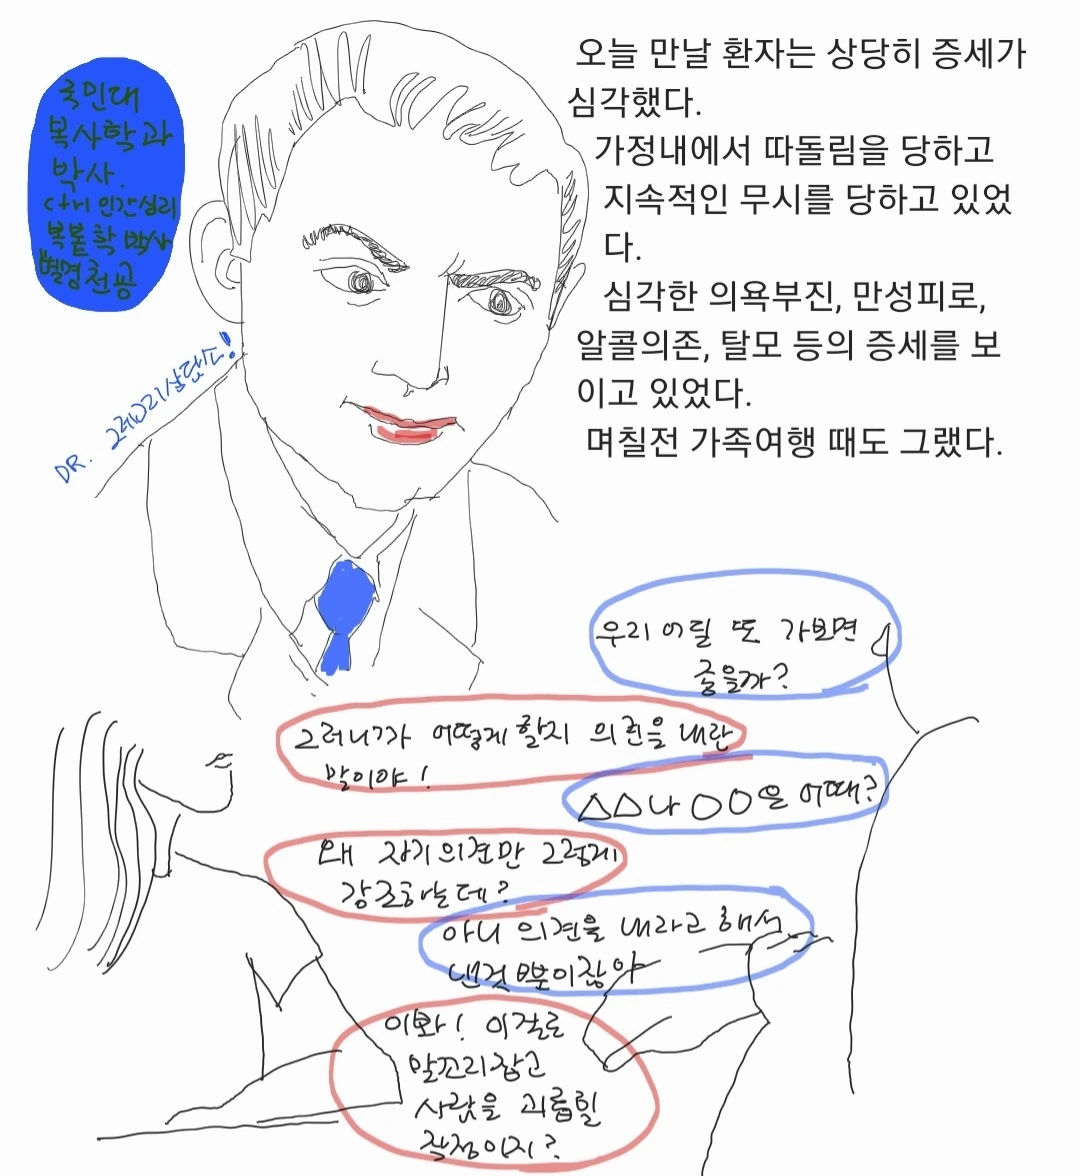 국민대
복사학과
박사.
ctrl 인간심리
복붙학 박사
별명 천공
DR. 그레고리상담소!
오늘 만날 환자는 상당히 증세가
심각했다.
가정내에서 따돌림을 당하고
지속적인 무시를 당하고 있었
다.
심각한 의욕부진, 만성피로,
알콜의존, 탈모 등의 증세를 보
이고 있었다.
며칠전 가족여행 때도 그랬다.
우리 어딜 또 가보면
좋을까?
그러니까 어떻게 할지 의견을 내란
말이야!
△△나 ○○은 어때?
왜 자기 의견만 그렇게
강조하는데?
아니 의견을 내라고 해서
낸것 뿐이잖아
이봐! 이걸로
말꼬리잡고
사람을 괴롭힐
작정이지?